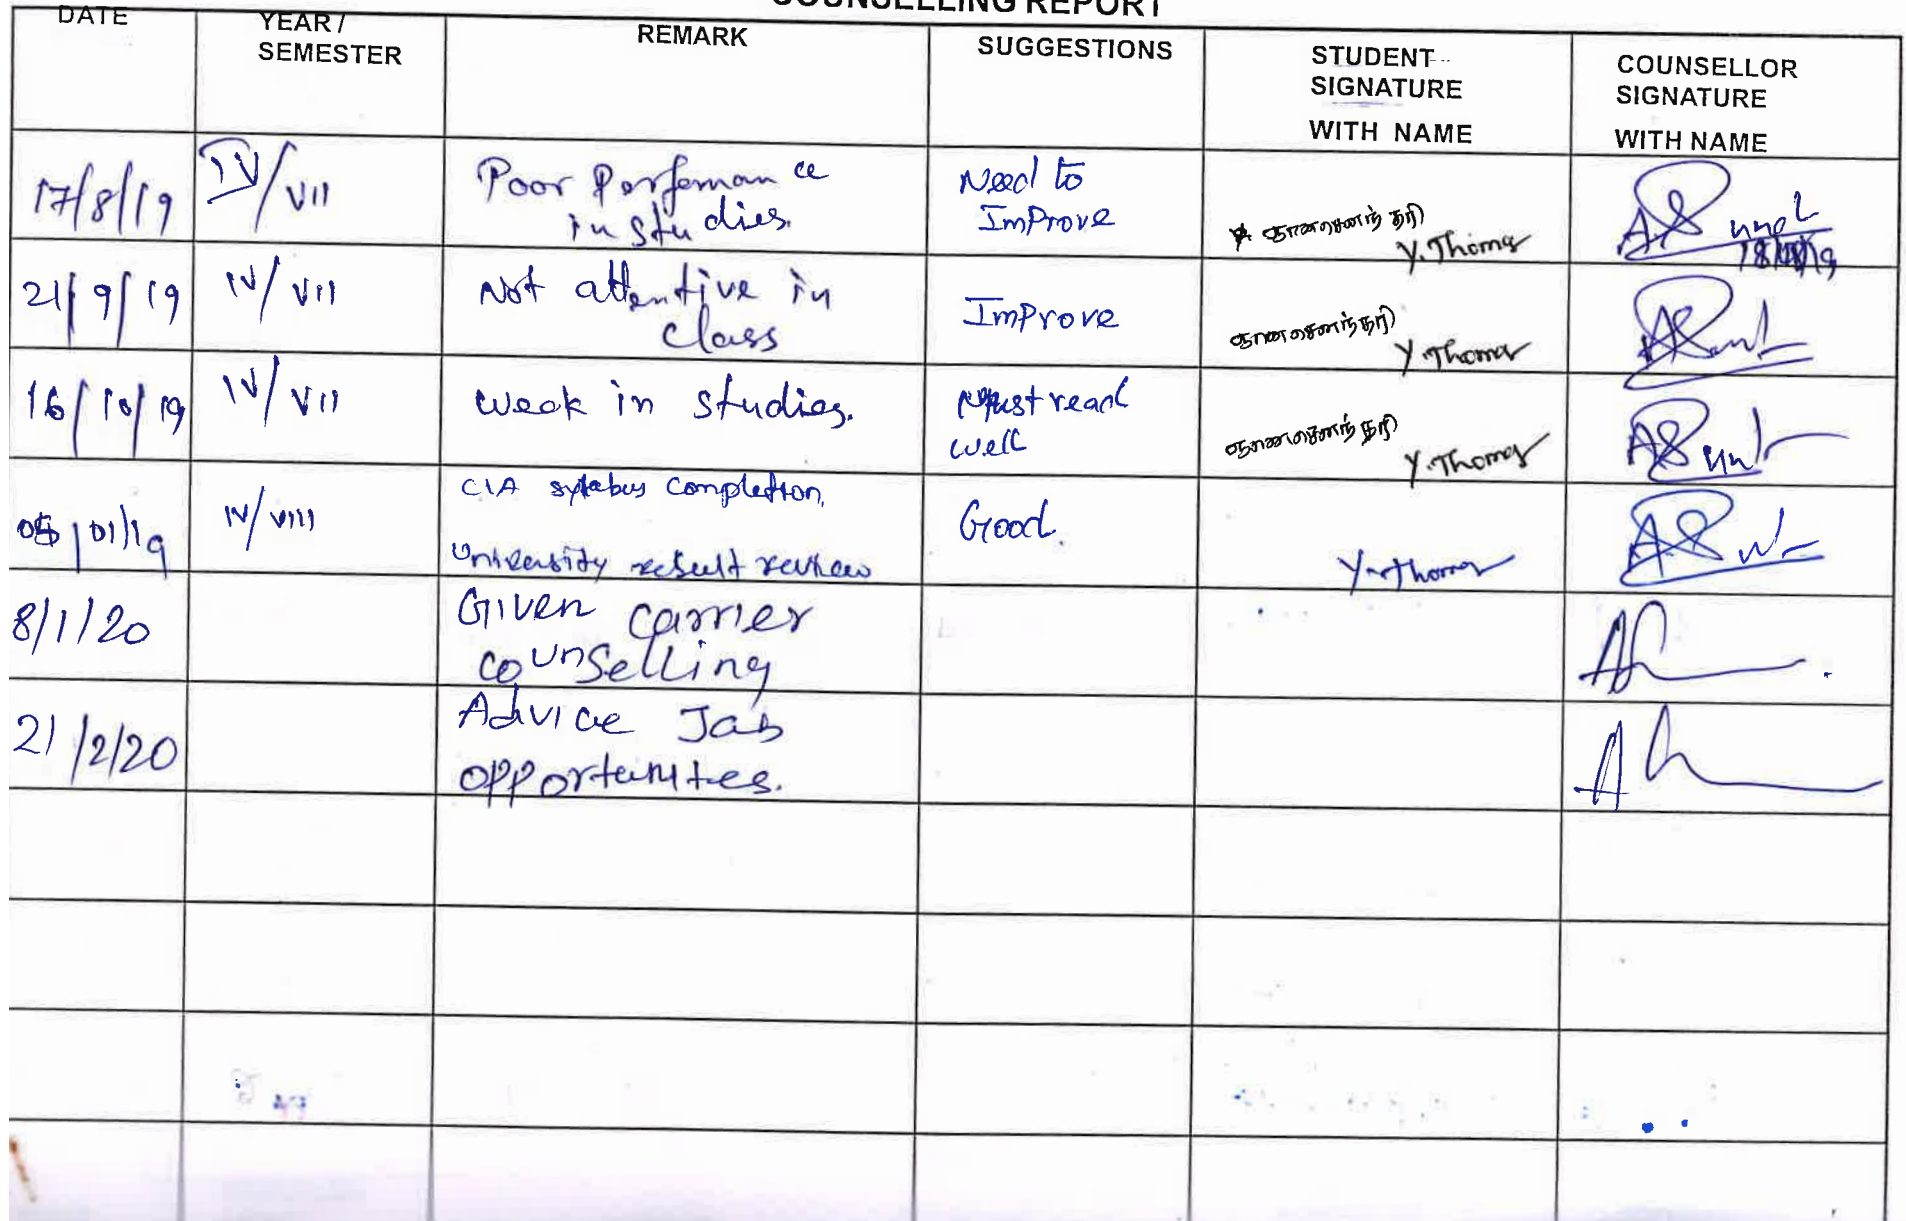 COUNSELLING REPORT
DATE
YEAR /
SEMESTER
REMARK
SUGGESTIONS
STUDENT
SIGNATURE
WITH NAME
COUNSELLOR
SIGNATURE
WITH NAME
17/8/19
IV/VII
Poor Perfomance
in studies.
Need to
ImProve
Y.Thomas
21/9/19
IV/VII
Not attentive in
class
ImProve
Y.Thomas
16/10/19
IV/VII
week in studies.
Must read
well
Y.Thomas
05/01/19
IV/VIII
CIA sylabus completion,
University result review
Good.
Y.Thomas
8/1/20
Given carrier
counselling
21/2/20
Advice Job
opportunites.